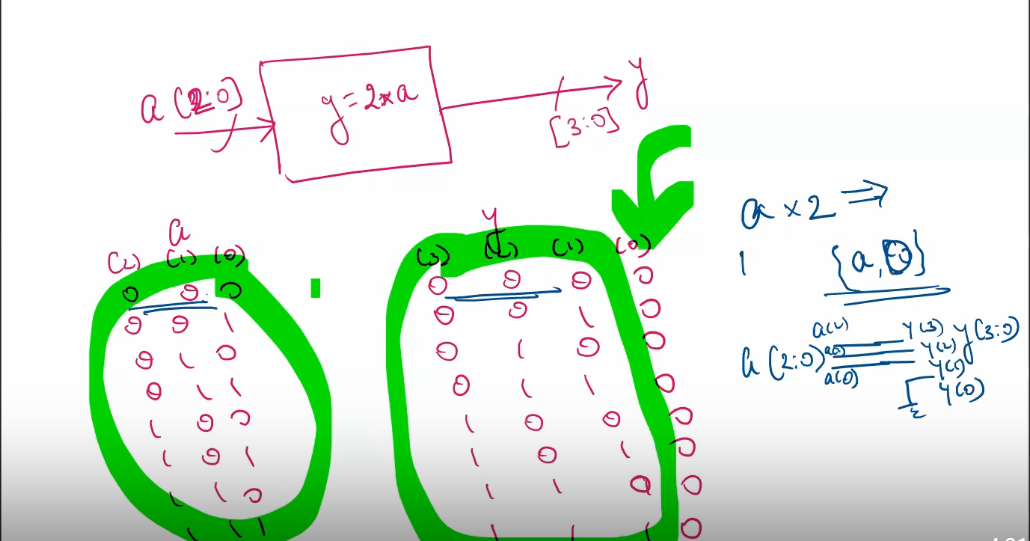 a [2:0]
y=2*a
y
[3:0]
a
(2) (1) (0)
0 0 0
0 0 1
0 1 0
0 1 1
1 0 0
1 0 1
1 1 0
1 1 1
y
(3) (2) (1) (0)
0 0 0 0
0 0 1 0
0 1 0 0
0 1 1 0
1 0 0 0
1 0 1 0
1 1 0 0
1 1 1 0
a × 2 ⇒
{a,0}
a(2) y(3) y(3:0)
a(2:0) a(1) y(2)
a(0) y(1)
y(0)